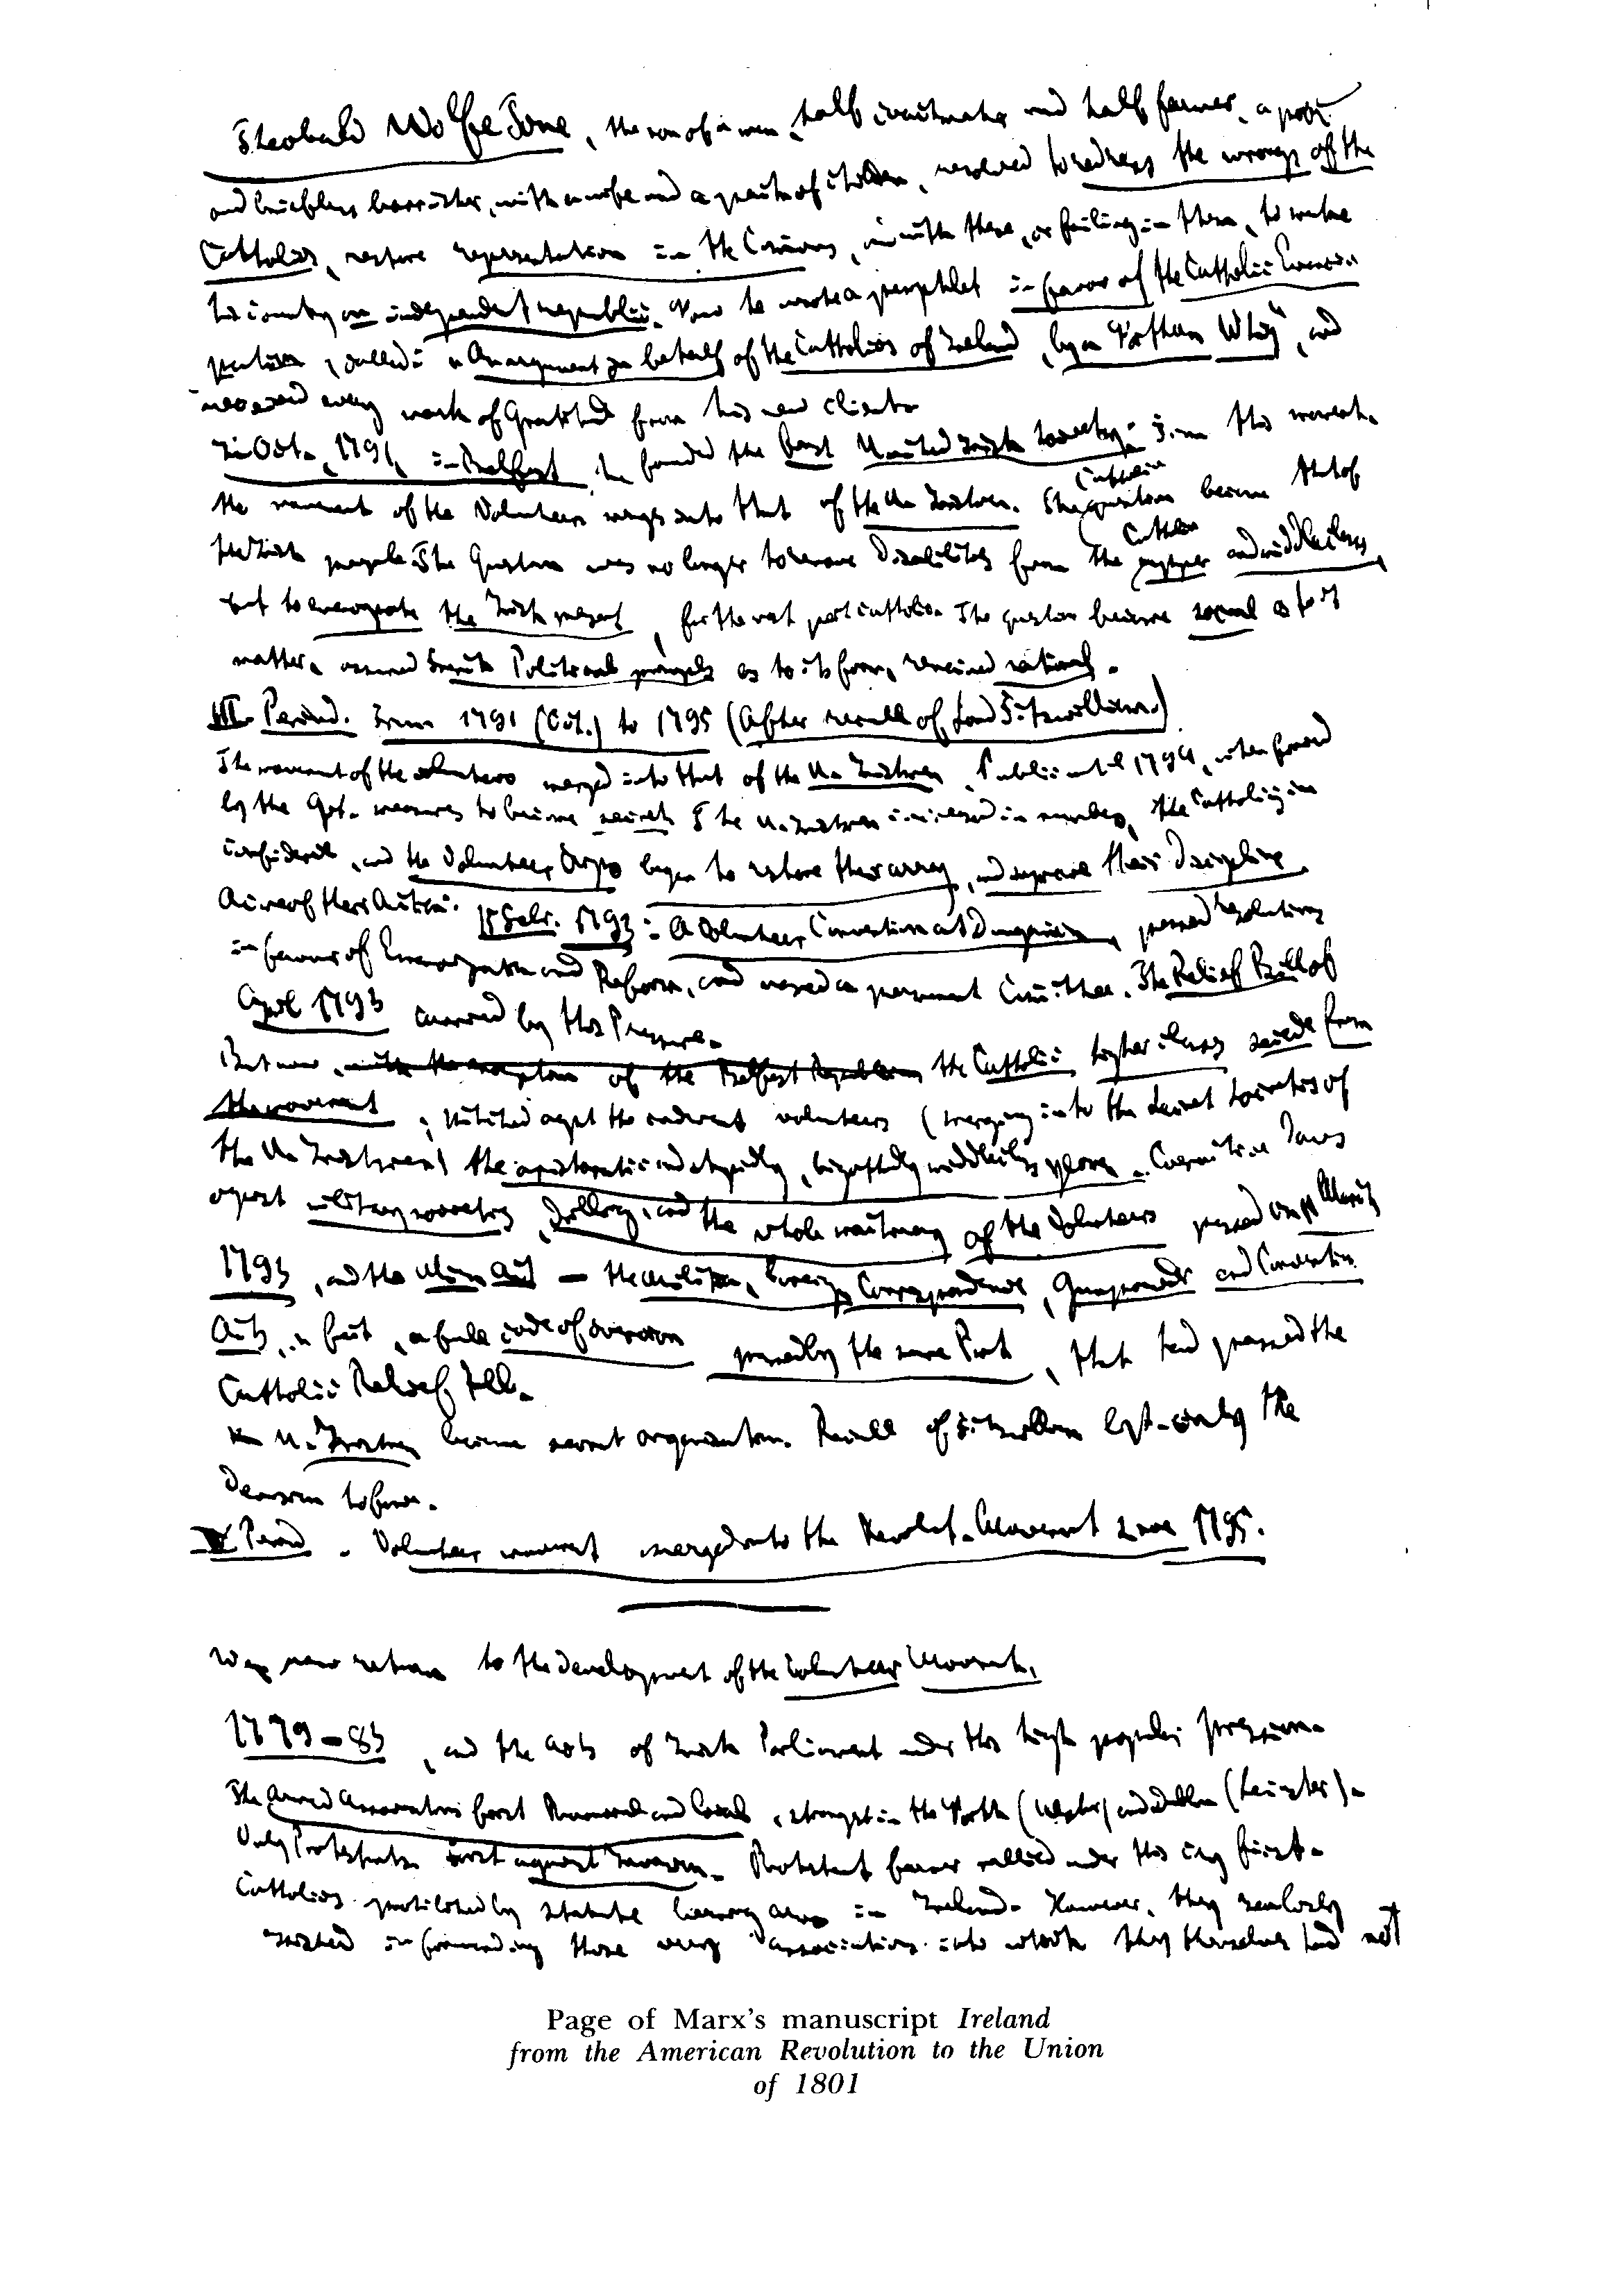 Theobald Wolfe Tone, the son of a man, half coachmaker and half farmer, a poor
and briefless barrister, with a wife and a of children, resolved to redress the wrongs of the
Catholics, restore representation in the Commons, and with these, or failing in them, to make
his country an independent republic. Now he wrote a pamphlet in favor of the Catholic Emanci-
pation, called: "An argument on behalf of the Catholics of Ireland, by a Northern Whig", and
received every mark of Gratitude from his new clients.
In Oct. 1791, in Belfast he founded the first United Irish Society. From this moment
the movement of the Volunteers merges into that of the Un. Irishmen. The Catholic question became that of
the Irish people. The Question was no longer to remove Disabilities from the Catholic upper and middleclass,
but to emancipate the Irish peasant, for the vast part catholic. The question became social as to its
matter, assumed French Political principles as to its form, remained national.
III. Period. From 1791 (Oct.) to 1795 (After recall of Lord Fitzwilliam.)
The movement of the volunteers merged into that of the Un. Irishmen. Public until 1794, when forced
by the Gvt. measures to become secret. The Un. Irishmen increased in number, the Catholics in
confidence, and the Volunteer Corps began to restore their array, and improve their Discipline.
15 Febr. 1793: A Volunteer Convention at Dungannon, passed resolutions
in favour of Emancipation and Reform, and named a permanent Committee. The Relief Bill of
April 1793 carried by this Pressure.
But now, with the exception of the Belfast Republicans the Catholic higher class secede from
the movement; against the volunteers (merging into the secret societies of
the Un. Irishmen) the aristocratic and middleclass yeomen. Coercive laws
against military societies, drilling, and the whole machinery of the Volunteers passed on 11 March
1793, and the Alien Act — the militia, Foreign Correspondence, Gunpowder and Convention
Acts, in fact, a full code of coercion passed by the same Parlt., that had passed the
Catholic Relief Bill.
Un. Irishmen become secret organisation. Recall of Fitzwilliam left only the
Decision to force.
IV Period. Volunteer movement merged into the Revolut. Movement since 1795.
We now return to the development of the Volunteer Movemt.
1779-83, and the acts of Irish Parliament under this high popular pressure.
The Armed Associations first Provincial and Local, strongest in the North (Ulster) and Dublin (Leinster).
Only Protestants. First against Invasion. Protestant farmer rallied under this cry first.
Catholics prohibited by statute bearing arms in Ireland. However, they zealously
assisted in forwarding those very associations into which they themselves had not
Page of Marx's manuscript Ireland
from the American Revolution to the Union
of 1801